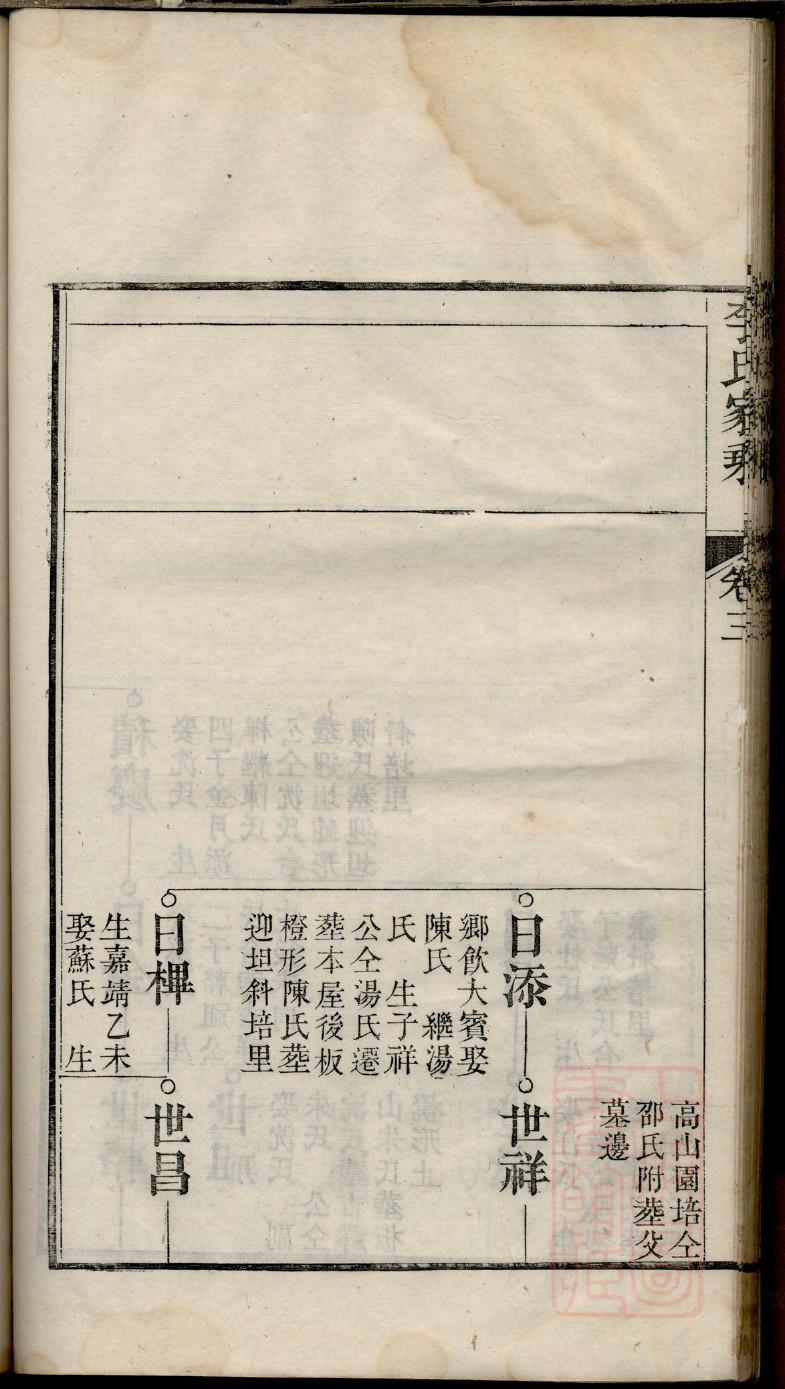 李氏家乘
卷三
高山園培仝
邵氏附塟父
墓邊
日添
鄉飲大賓娶
陳氏 繼湯
氏 生子祥
公仝湯氏遷
塟本屋後板
橙形陳氏塟
迎坦斜培里
世祥
日樿
生嘉靖乙未
娶蘇氏 生
世昌